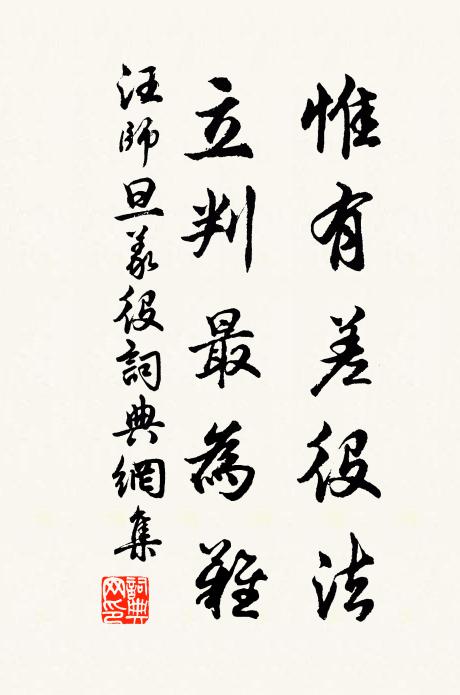 惟有差役法
立判最為難
汪師旦義役詞典網集
詞典網印